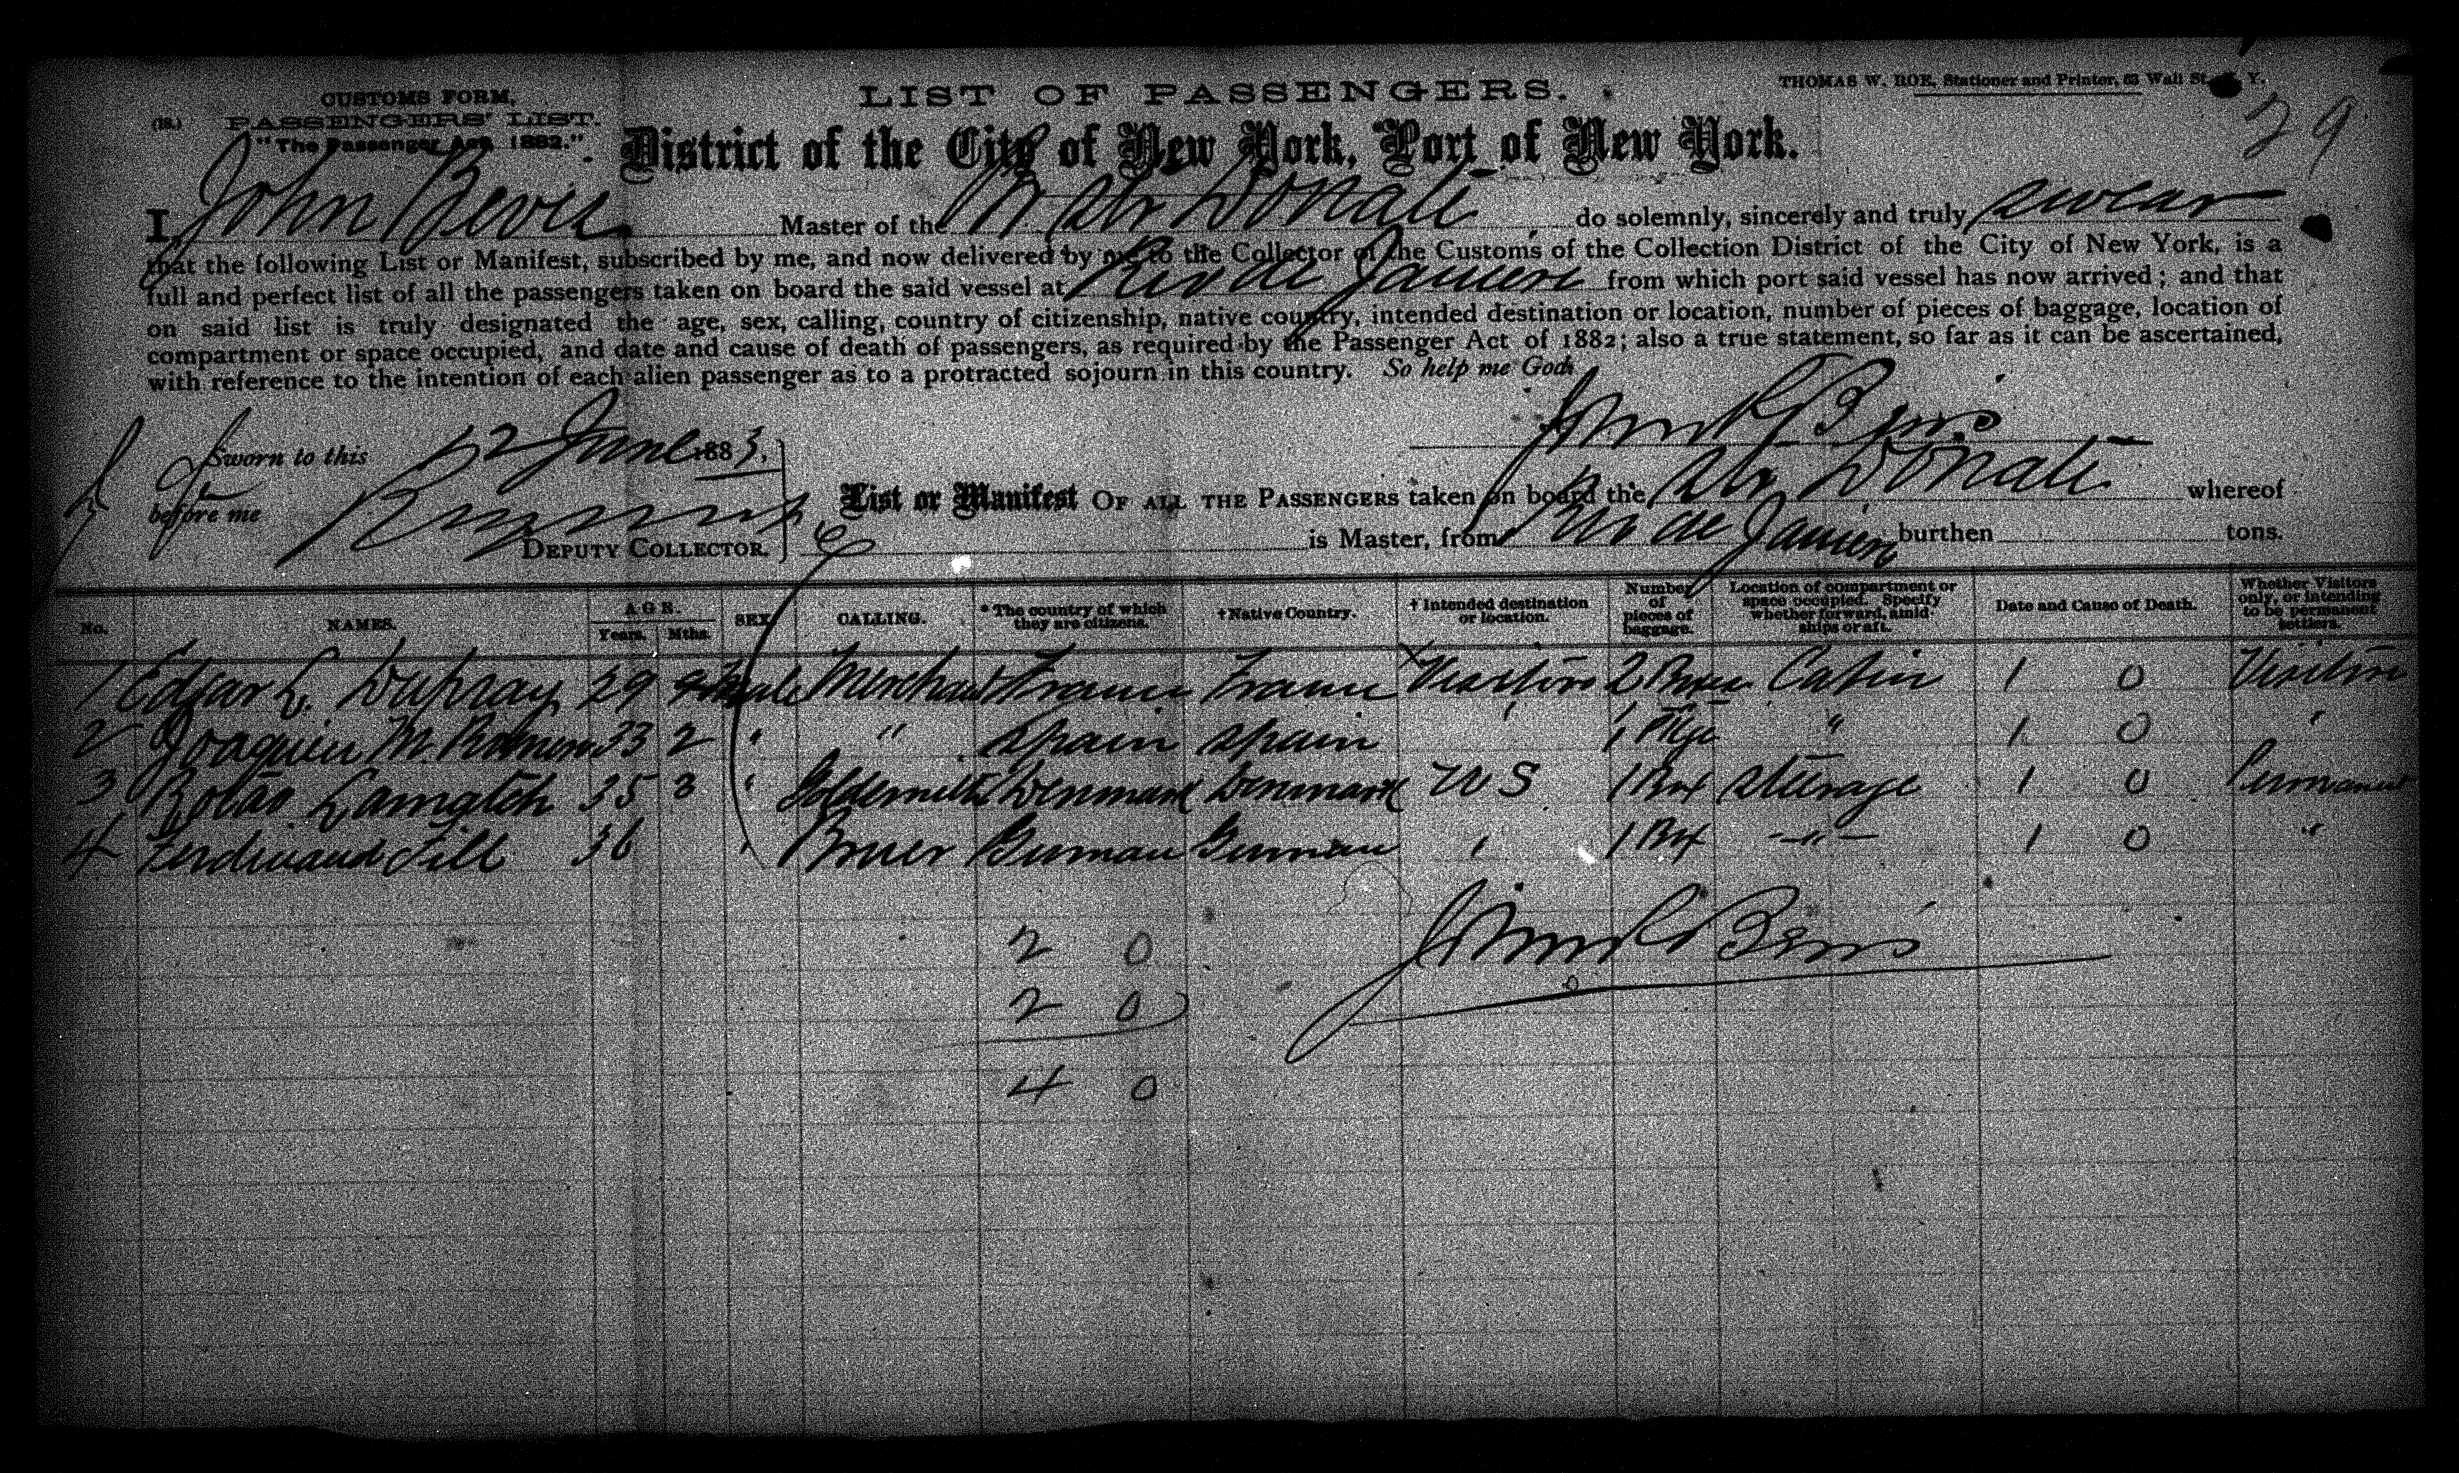 CUSTOMS FORM,
(18.) PASSENGERS' LIST.
"The Passenger Act, 1882."
LIST OF PASSENGERS.
THOMAS W. ROE, Stationer and Printer, 63 Wall St., N. Y.
29
District of the City of New York, Port of New York.
I, John Master of the Donati do solemnly, sincerely and truly swear
that the following List or Manifest, subscribed by me, and now delivered by me to the Collector of the Customs of the Collection District of the City of New York, is a
full and perfect list of all the passengers taken on board the said vessel at Rio de Janeiro from which port said vessel has now arrived; and that
on said list is truly designated the age, sex, calling, country of citizenship, native country, intended destination or location, number of pieces of baggage, location of
compartment or space occupied, and date and cause of death of passengers, as required by the Passenger Act of 1882; also a true statement, so far as it can be ascertained,
with reference to the intention of each alien passenger as to a protracted sojourn in this country. So help me God.
Sworn to this 12 June 1883.
before me
DEPUTY COLLECTOR.
List or Manifest OF ALL THE PASSENGERS taken on board the Str Donati whereof
is Master, from Rio de Janeiro burthen tons.
No. NAMES. AGE. Years. Mths. SEX. CALLING. * The country of which they are citizens. † Native Country. † Intended destination or location. Number of pieces of baggage. Location of compartment or space occupied. Specify whether forward, amid ships or aft. Date and Cause of Death. Whether Visitors only, or intending to be permanent settlers.
1 Edgar L. 29 Male Merchant France France 2 Cabin 1 0
2 Joaquin M. 33 2 " " Spain Spain " 1 Pkge " 1 0 "
3 35 3 " Goldsmith Denmark Denmark U S 1 Box Steerage 1 0 Permanent
4 Ferdinand Fill 36 " German German " 1 Box " 1 0 "
2 0
2 0
4 0